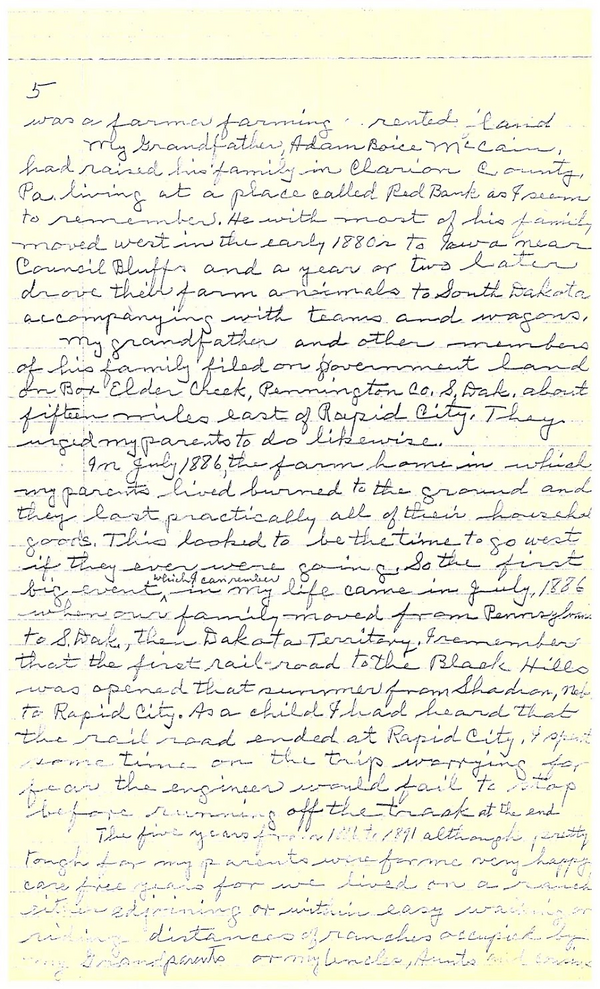 5
was a farmer farming rented land
My Grandfather, Adam Boice McCain,
had raised his family in Clarion County,
Pa. living at a place called Red Bank as I seem
to remember. He with most of his family
moved west in the early 1880s to Iowa near
Council Bluffs and a year or two later
drove their farm animals to South Dakota
accompanying with teams and wagons.
My grandfather and other members
of his family filed on government land
on Box Elder Creek, Pennington Co. S. Dak. about
fifteen miles east of Rapid City. They
urged my parents to do likewise.
In July 1886, the farm home in which
my parents lived burned to the ground and
they lost practically all of their househo
goods. This looked to be the time to go west
if they ever were going. So the first
big event ^ which I can remember in my life came in July, 1886
when our family moved from Pennsylvania
to S. Dak., then Dakota Territory. I remember
that the first rail-road to the Black Hills
was opened that summer from Shadron, Neb.
to Rapid City. As a child I had heard that
the rail road ended at Rapid City. I spent
some time on the trip worrying for
fear the engineer would fail to stop
before running off the track at the end
The five years from 1886 to 1891 although pretty
tough for my parents were for me very happy
care free years for we lived on a ranch
either adjoining or within easy walking or
riding distances of ranches occupied by
my Grandparents or my Uncles, Aunts and cousins